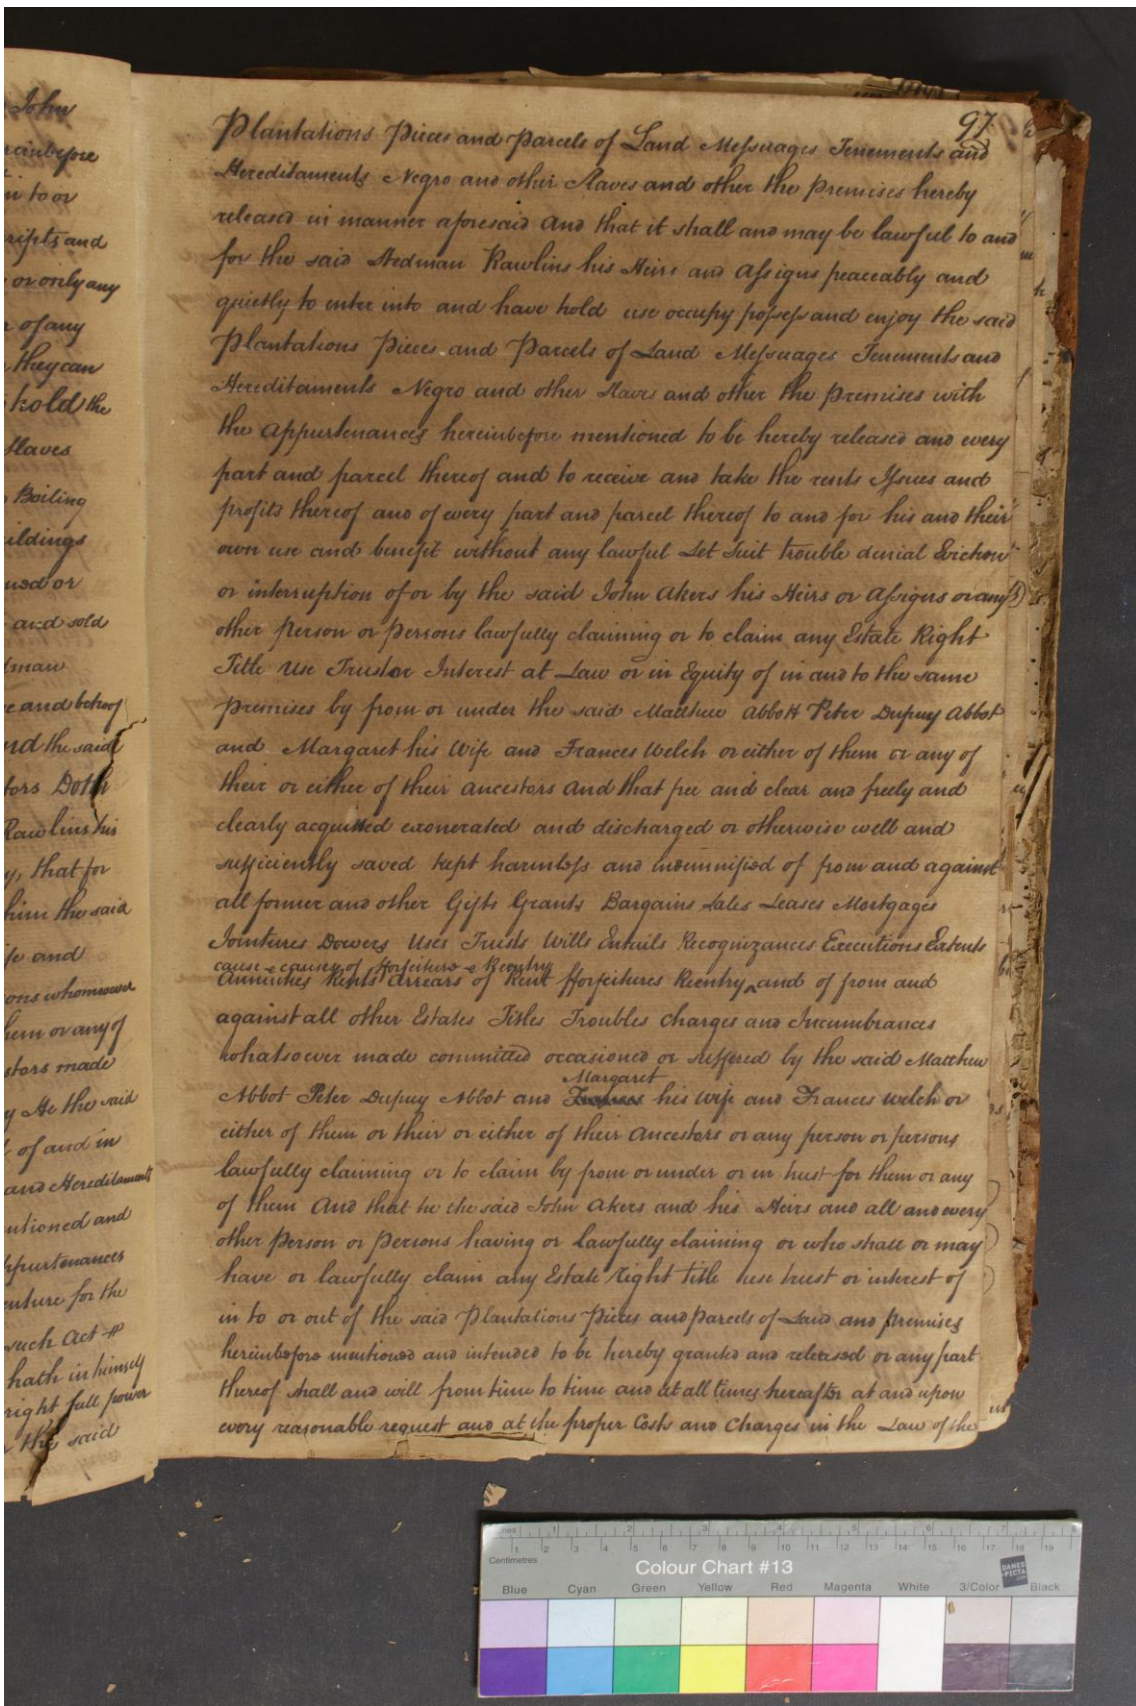 John
reinbefore
in to or
ripts and
or only any
of any
they can
hold the
Slaves
Boiling
ildings
used or
and sold
dman
e and behoof
nd the said
tors Doth
Rawlins his
y, that for
him the said
fe and
ons whomsoever
hem or any of
stors made
y He the said
of and in
and Hereditaments
ntioned and
ppurtenances
enture for the
such Act
hath in himself
right full power
the said
97
Plantations Pieces and Parcels of Land Messuages Tenements and
Hereditaments Negro and other Slaves and other the Premises hereby
released in manner aforesaid And that it shall and may be lawful to and
for the said Stedman Rawlins his Heirs and Assigns peaceably and
quietly to enter into and have hold use occupy possess and enjoy the said
Plantations Pieces and Parcels of Land Messuages Tenements and
Hereditaments Negro and other Slaves and other the Premises with
the Appurtenances hereinbefore mentioned to be hereby released and every
part and parcel thereof and to receive and take the rents Issues and
profits thereof and of every part and parcel thereof to and for his and their
own use and benefit without any lawful Let Suit trouble denial Eviction
or interruption of or by the said John Akers his Heirs or Assigns or any
other Person or Persons lawfully claiming or to claim any Estate Right
Title Use Trust or Interest at Law or in Equity of in and to the same
premises by from or under the said Matthew Abbott Peter Dupuy Abbot
and Margaret his Wife and Frances Welch or either of them or any of
their or either of their ancestors and that free and clear and freely and
clearly acquitted exonerated and discharged or otherwise well and
sufficiently saved kept harmless and indemnified of from and against
all former and other Gifts Grants Bargains Sales Leases Mortgages
Jointures Dowers Uses Trusts Wills Entails Recognizances Executions Extents
cause & causes of fforfeiture & Reentry
Annuities Rents arrears of Rent fforfeitures Reentry ^ and of from and
against all other Estates Titles Troubles Charges and Incumbrances
whatsoever made committed occasioned or suffered by the said Matthew
Margaret
Abbot Peter Dupuy Abbot and Frances his Wife and Frances Welch or
either of them or their or either of their Ancestors or any person or persons
lawfully claiming or to claim by from or under or in trust for them or any
of them And that he the said John Akers and his Heirs and all and every
other Person or Persons having or lawfully claiming or who shall or may
have or lawfully claim any Estate right title use trust or interest of
in to or out of the said Plantations Pieces and Parcels of Land and Premises
hereinbefore mentioned and intended to be hereby granted and released or any part
thereof shall and will from time to time and at all times hereafter at and upon
every reasonable request and at the proper Costs and Charges in the Law of the
Inches 1 2 3 4 5 6 7 8
1 2 3 4 5 6 7 8 9 10 11 12 13 14 15 16 17 18 19
Centimetres
Colour Chart #13
DANES
-PICTA
Blue Cyan Green Yellow Red Magenta White 3/Color Black